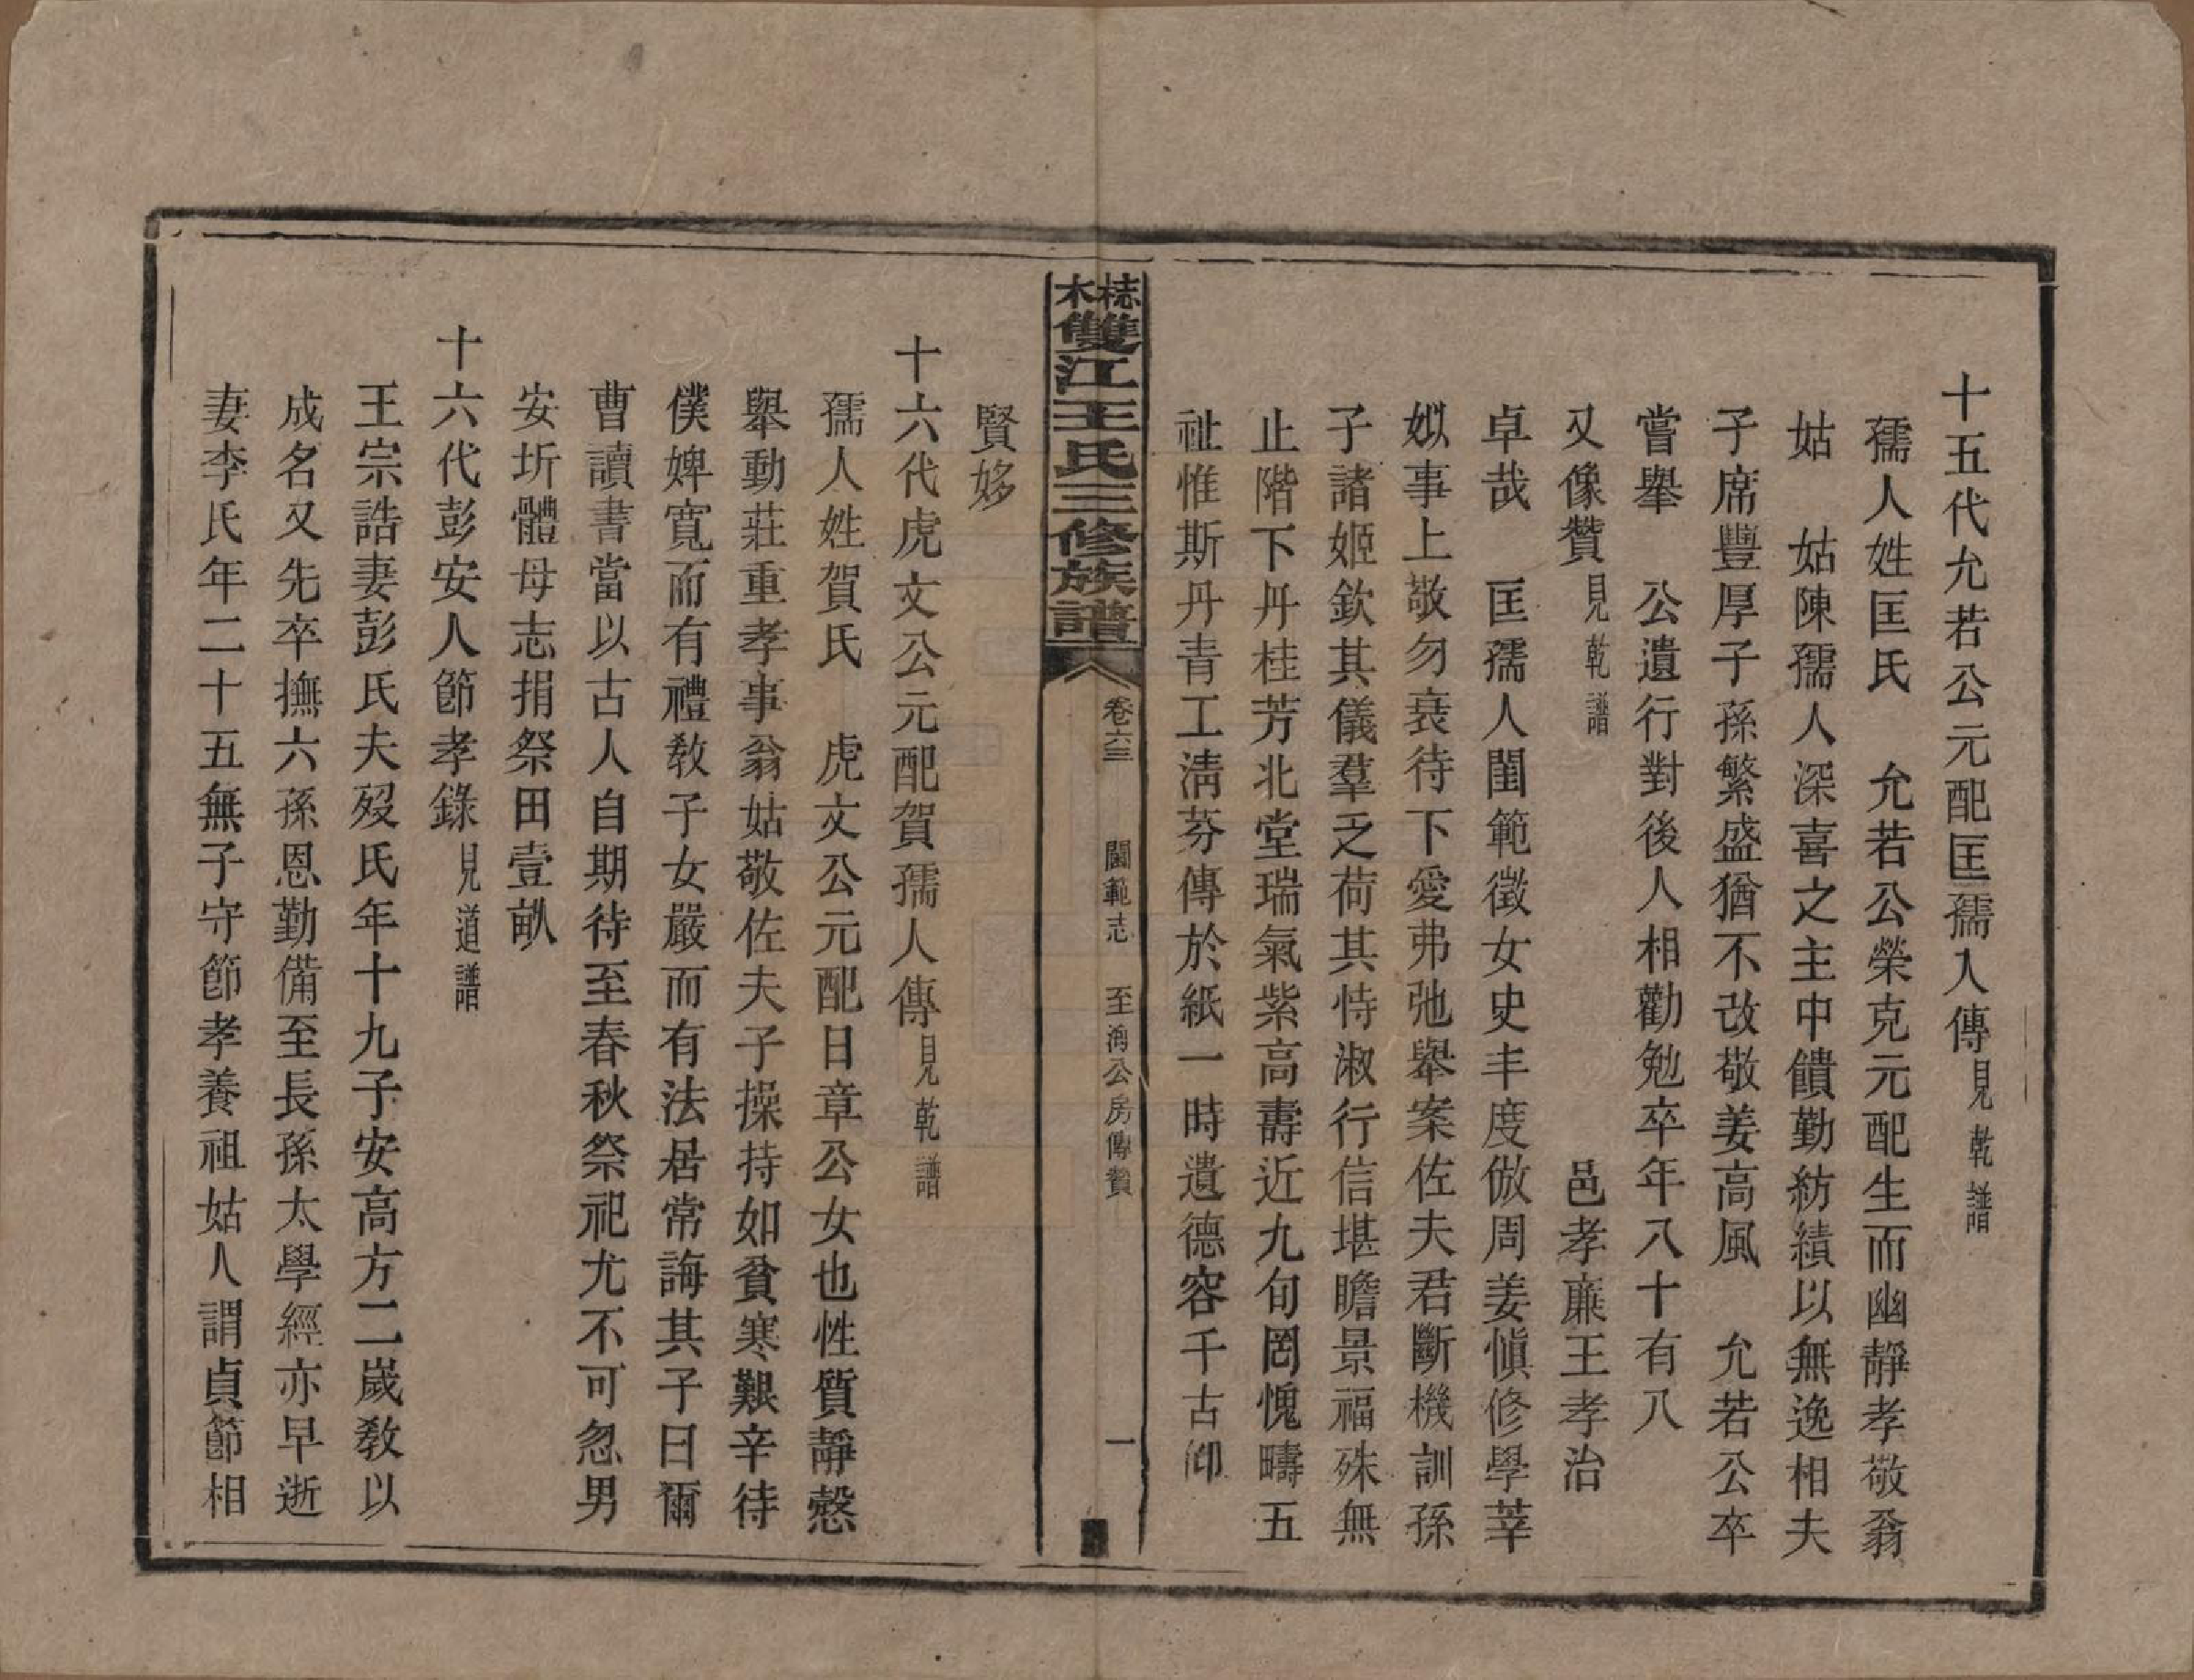 十五代允若公元配匡孺人傳見乾譜
孺人姓匡氏　允若公榮克元配生而幽靜孝敬翁
姑　姑陳孺人深喜之主中饋勤紡績以無逸相夫
子席豐厚子孫繁盛猶不改敬姜高風　允若公卒
嘗舉　公遺行對後人相勸勉卒年八十有八
又像贊見乾譜　邑孝廉王孝治
卓哉　匡孺人閨範徵女史丰度倣周姜慎修學莘
姒事上敬勿衰待下愛弗弛舉案佐夫君斷機訓孫
子諸姬欽其儀羣乏荷其恃淑行信堪瞻景福殊無
止階下丹桂芳北堂瑞氣紫高壽近九旬罔愧疇五
祉惟斯丹青工淸芬傳於紙一時遺德容千古仰
梽木雙江王氏三修族譜
卷六三　閫範志　至海公房傳贊　一
賢姼
十六代虎文公元配賀孺人傳見乾譜
孺人姓賀氏　虎文公元配日章公女也性質靜慤
舉動莊重孝事翁姑敬佐夫子操持如貧寒艱辛待
僕婢寬而有禮敎子女嚴而有法居常誨其子曰爾
曹讀書當以古人自期待至春秋祭祀尤不可忽男
安圻體母志捐祭田壹畝
十六代彭安人節孝錄見道譜
王宗誥妻彭氏夫歿氏年十九子安高方二歲敎以
成名又先卒撫六孫恩勤備至長孫太學經亦早逝
妻李氏年二十五無子守節孝養祖姑人謂貞節相